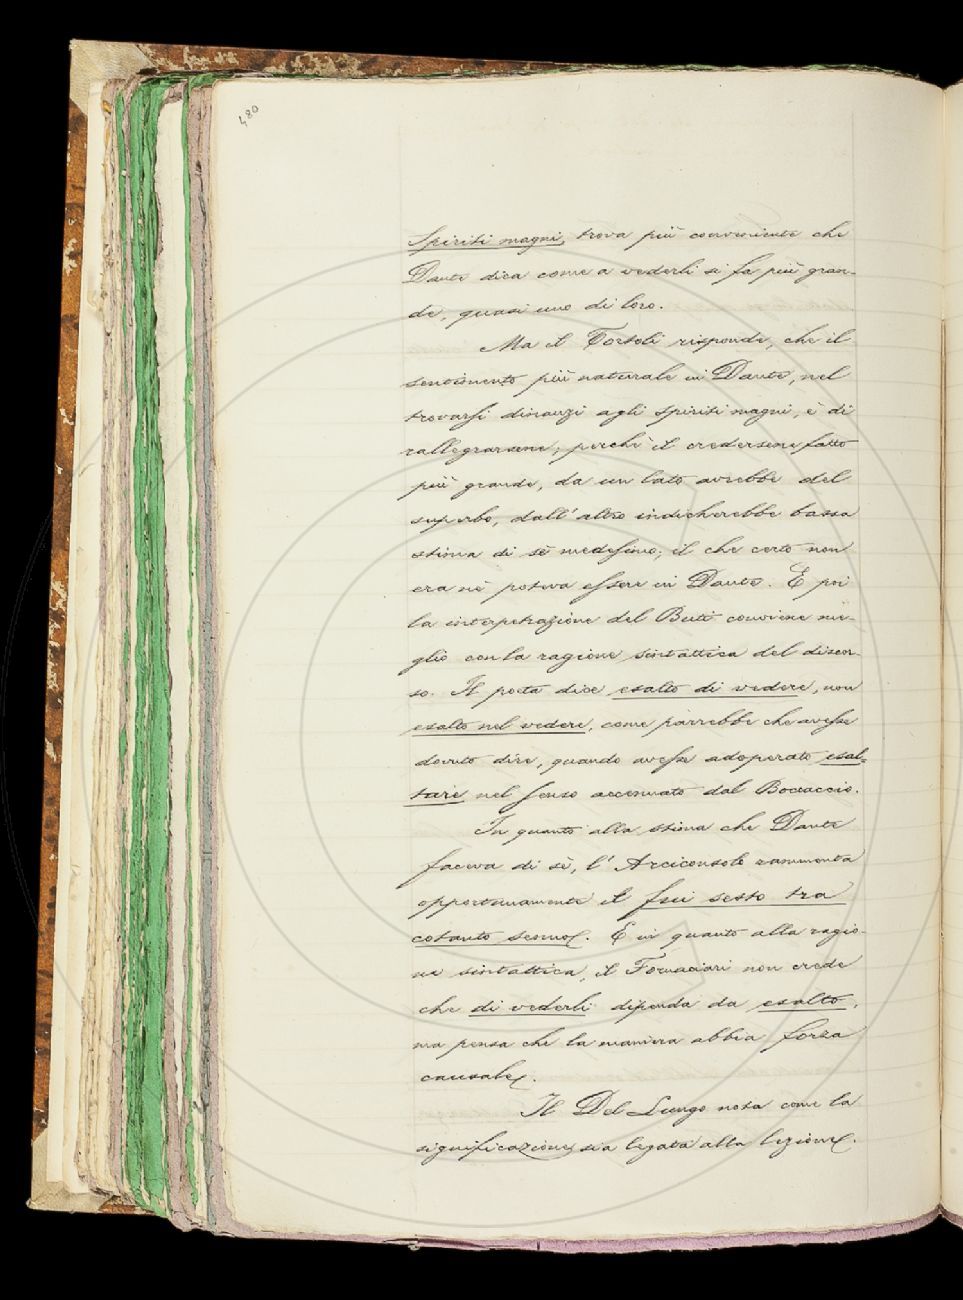 480
Spiriti magni, trova più conveniente che
Dante dica come a vederli si fa più gran-
de, quasi uno di loro.
Ma il Tortoli risponde, che il
sentimento più naturale in Dante, nel
trovarsi dinanzi agli spiriti magni, è di
rallegrarsene; perchè il credersene fatto
più grande, da un lato avrebbe del
superbo, dall'altro indicherebbe bassa
stima di sè medesimo; il che certo non
era nè poteva essere in Dante. E poi
la interpetrazione del Buti conviene me-
glio con la ragione sintattica del discor-
so. Il poeta dice esalto di vedere, non
esalto nel vedere, come parrebbe che avesse
dovuto dire, quando avesse adoperato esal-
tare nel senso accennato dal Boccaccio.
In quanto alla stima che Dante
faceva di sè, l'Arciconsolo rammenta
opportunamente il fui sesto tra
cotanto senno. E in quanto alla ragio-
ne sintattica, il Fornaciari non crede
che di vederli dipenda da esalto,
ma pensa che la maniera abbia forza
causale.
Il Del Lungo nota come la
significazione sia legata alla lezione.